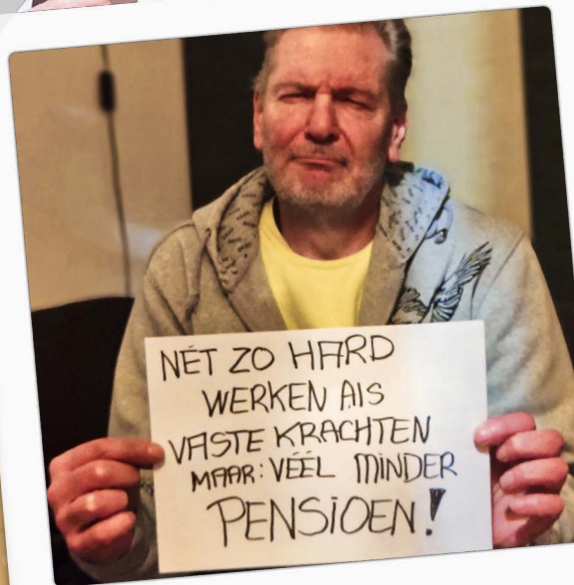 NÉT ZO HARD
WERKEN ALS
VASTE KRACHTEN
MAAR: VÉÉL MINDER
PENSIOEN!